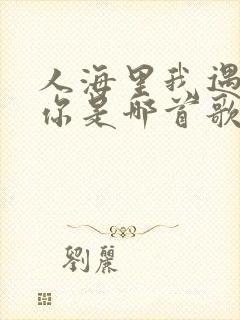 人海里我遇
你是哪首歌
劉麗